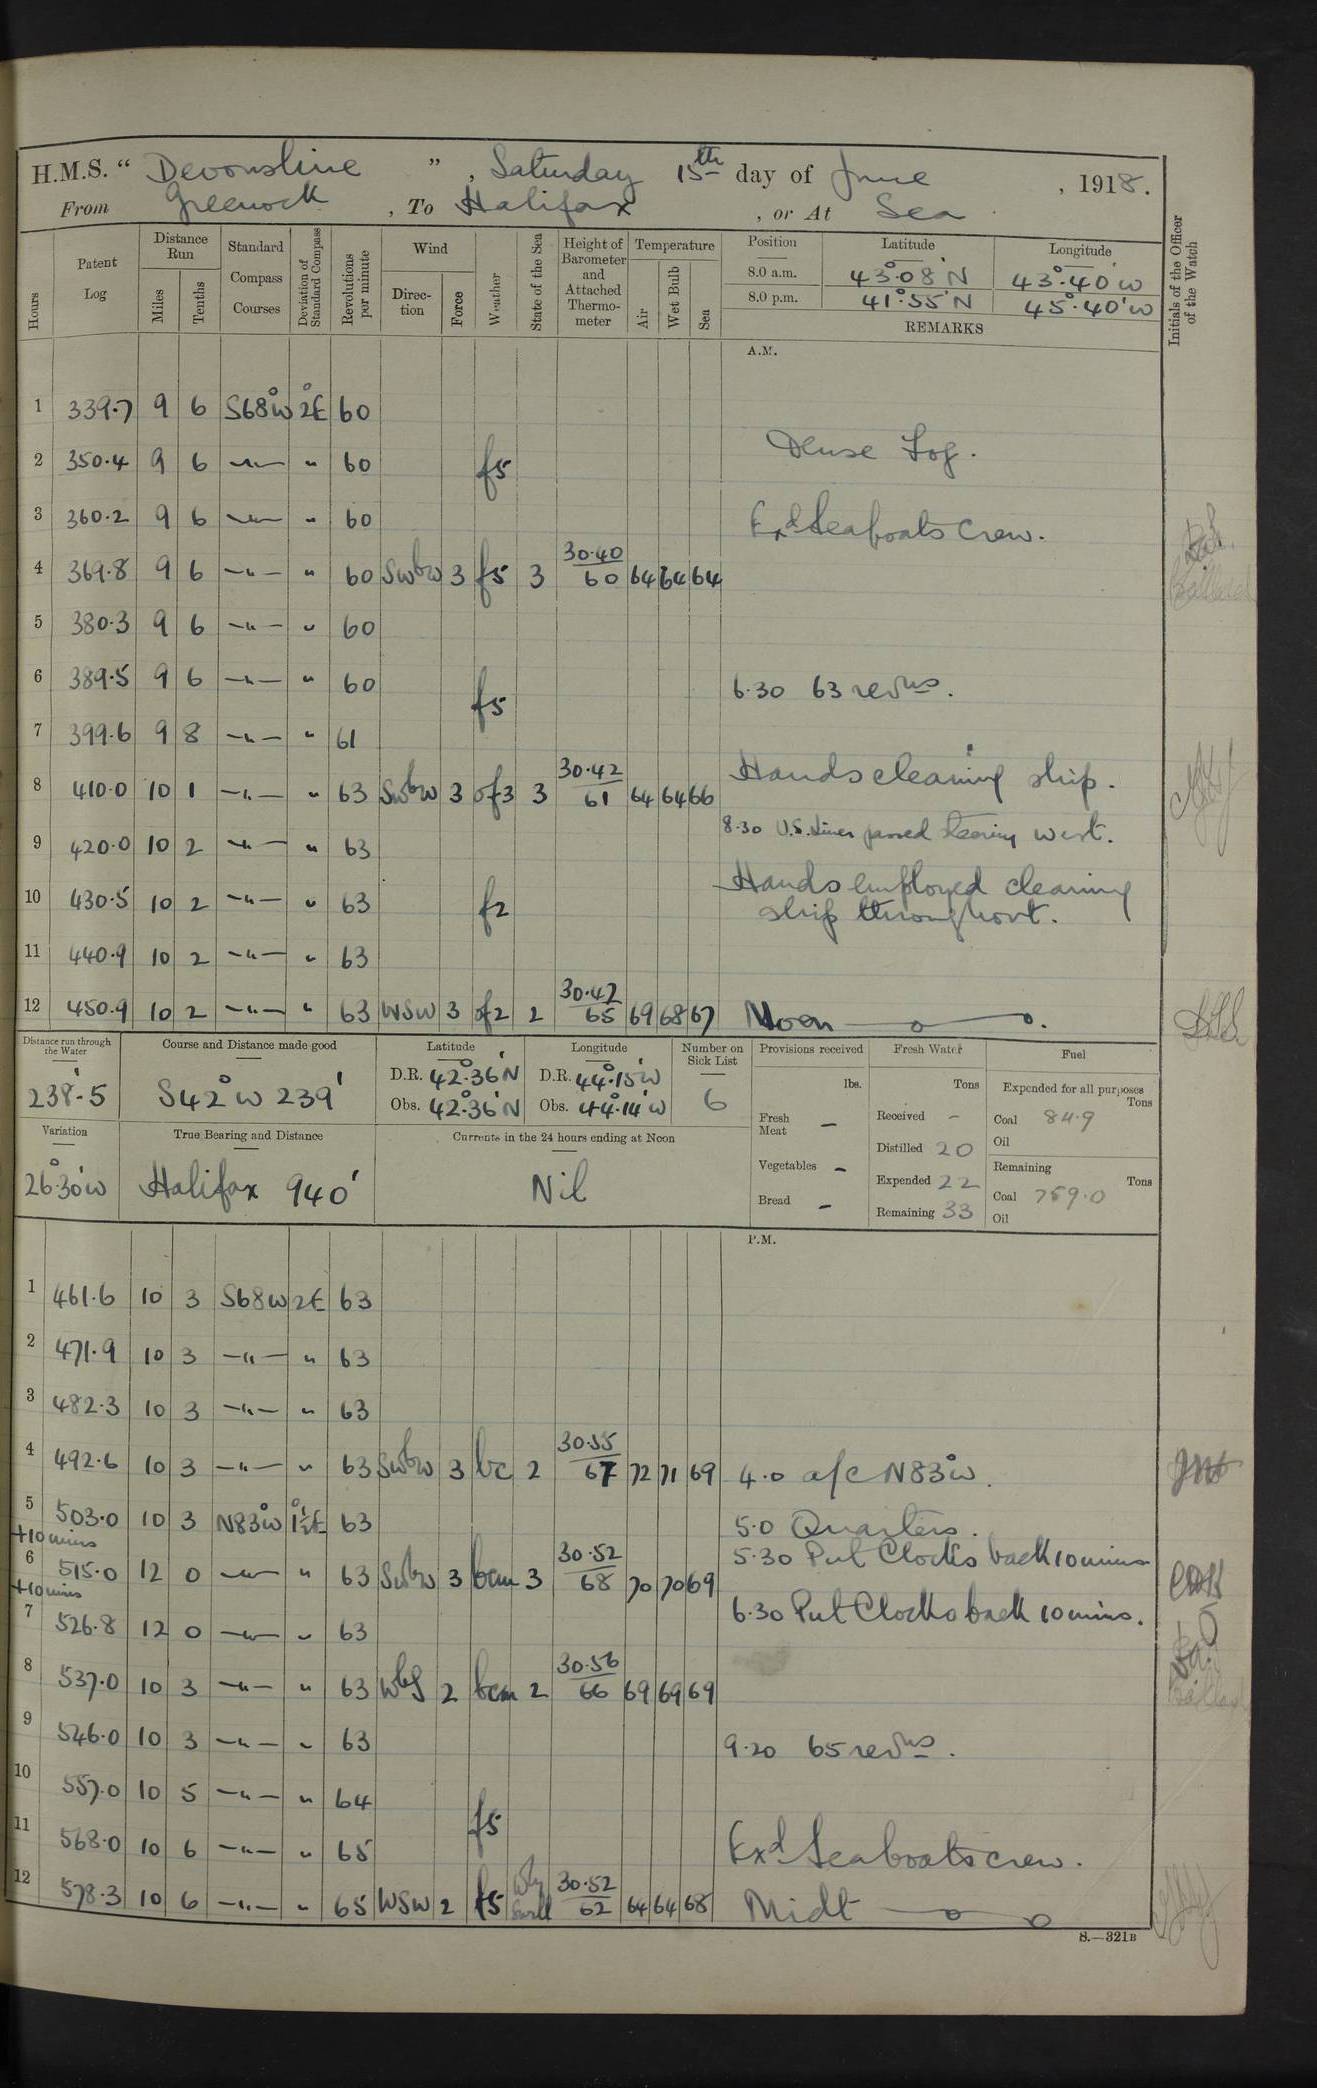 H.M.S. “ Devonshire ” , Saturday 15th day of June , 1918.
From Greenock , To Halifax , or At Sea
Hours
Patent Log
Distance Run
Miles
Tenths
Standard Compass Courses
Deviation of Standard Compass
Revolutions per minute
Wind
Direction
Force
Weather
State of the Sea
Height of Barometer and Attached Thermometer
Temperature
Air
Wet Bulb
Sea
Position Latitude Longitude
8.0 a.m. 43°.08'N 43°.40'W
8.0 p.m. 41°.55'N 45°.40'W
REMARKS
Initials of the Officer of the Watch
A.M.
1 339.7 9 6 S68°W 2°E 60
2 350.4 9 6 —"— " 60 f5 Dense Fog.
3 360.2 9 6 —"— " 60 Exd Seaboats Crew.
4 369.8 9 6 —"— " 60 SWbW 3 f5 3 30.40 60 64 64 64
5 380.3 9 6 —"— " 60
6 389.5 9 6 —"— " 60 f5 6.30 63 revns.
7 399.6 9 8 —"— " 61
8 410.0 10 1 —"— " 63 SWbW 3 of3 3 30.42 61 64 64 66 Hands cleaning ship.
8.30 U.S. Liner passed steering west.
9 420.0 10 2 —"— " 63
10 430.5 10 2 —"— " 63 f2 Hands employed cleaning
ship throughout.
11 440.9 10 2 —"— " 63
12 450.9 10 2 —"— " 63 WSW 3 of2 2 30.42 65 69 68 67 Noon
Distance run through the Water
238.5
Course and Distance made good
S42°W 239'
Latitude
D.R. 42°.36'N
Obs. 42°.36'N
Longitude
D.R. 44°.15'W
Obs. 44°.14'W
Number on Sick List
6
Variation
26°.30'W
True Bearing and Distance
Halifax 940'
Currents in the 24 hours ending at Noon
Nil
Provisions received
lbs.
Fresh Meat –
Vegetables –
Bread –
Fresh Water
Tons
Received –
Distilled 20
Expended 22
Remaining 33
Fuel
Expended for all purposes
Tons
Coal 84.9
Oil
Remaining
Tons
Coal 759.0
Oil
P.M.
1 461.6 10 3 S68W 2E 63
2 471.9 10 3 —"— " 63
3 482.3 10 3 —"— " 63
4 492.6 10 3 —"— " 63 SWbW 3 bc 2 30.55 67 72 71 69 4.0 a/c N83°W.
5 503.0 10 3 N83°W 1½°E 63 5.0 Quarters.
+10 mins 5.30 Put Clocks back 10 mins
6 515.0 12 0 —"— " 63 SWbW 3 bcm 3 30.52 68 70 70 69
+10 mins 6.30 Put Clocks back 10 mins.
7 526.8 12 0 —"— " 63
8 537.0 10 3 —"— " 63 WbS 2 bcm 2 30.56 66 69 69 69
9 546.0 10 3 —"— " 63 9.20 65 revns.
10 557.0 10 5 —"— " 64
11 568.0 10 6 —"— " 65 f5 Exd Seaboats crew.
12 578.3 10 6 —"— " 65 WSW 2 f5 Wly Swell 30.52 62 64 64 68 Midt
8.—321B